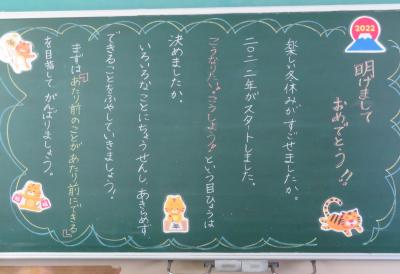 2022
明けまして
おめでとう!!
楽しい冬休みがすごせましたか。
二〇二二年がスタートしました。
「こうなりたい。」「こうしよう!!」という目ひょうは
決めましたか。
いろいろなことにちょうせんし、あきらめず、
できることをふやしていきましょう!
まずは「あたり前のことがあたり前にできる」
を目指してがんばりましょう。